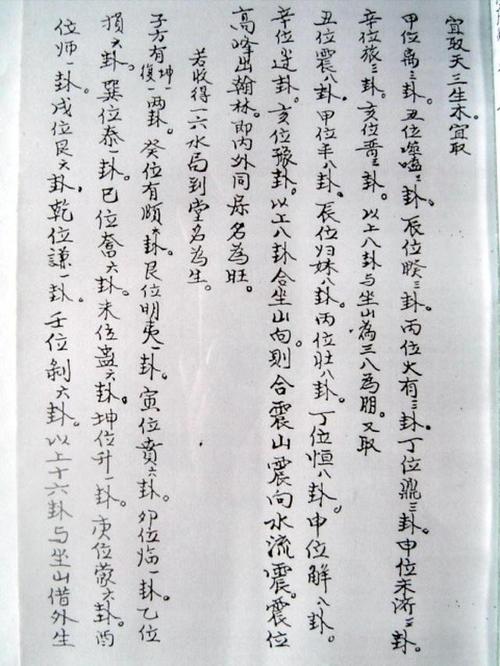 宜取天三生木宜取
甲位离三卦。丑位噬嗑三卦。辰位暌三卦。丙位火有三卦。丁位鼎三卦。申位未济三卦。
辛位旅三卦。亥位晋三卦。以上八卦与坐山為三八為朋。又取
丑位震八卦。甲位丰八卦。辰位归妹八卦。丙位壮八卦。丁位恒八卦。申位解八卦。
辛位过卦。亥位豫卦。以上八卦合坐山向。则合震山震向水流震。震位
高峰出翰林。即内外同染名為旺。
若收得一六水局到堂名為生。
子方有坤一復一两卦。癸位有颐六卦。艮位明夷一卦。寅位贲六卦。卯位临一卦。乙位
损六卦。巽位泰一卦。巳位畜六卦。未位蛊六卦。坤位升一卦。庚位蒙六卦。酉
位师一卦。戌位艮六卦。乾位謙一卦。壬位剝六卦。以上十六卦与坐山借外生